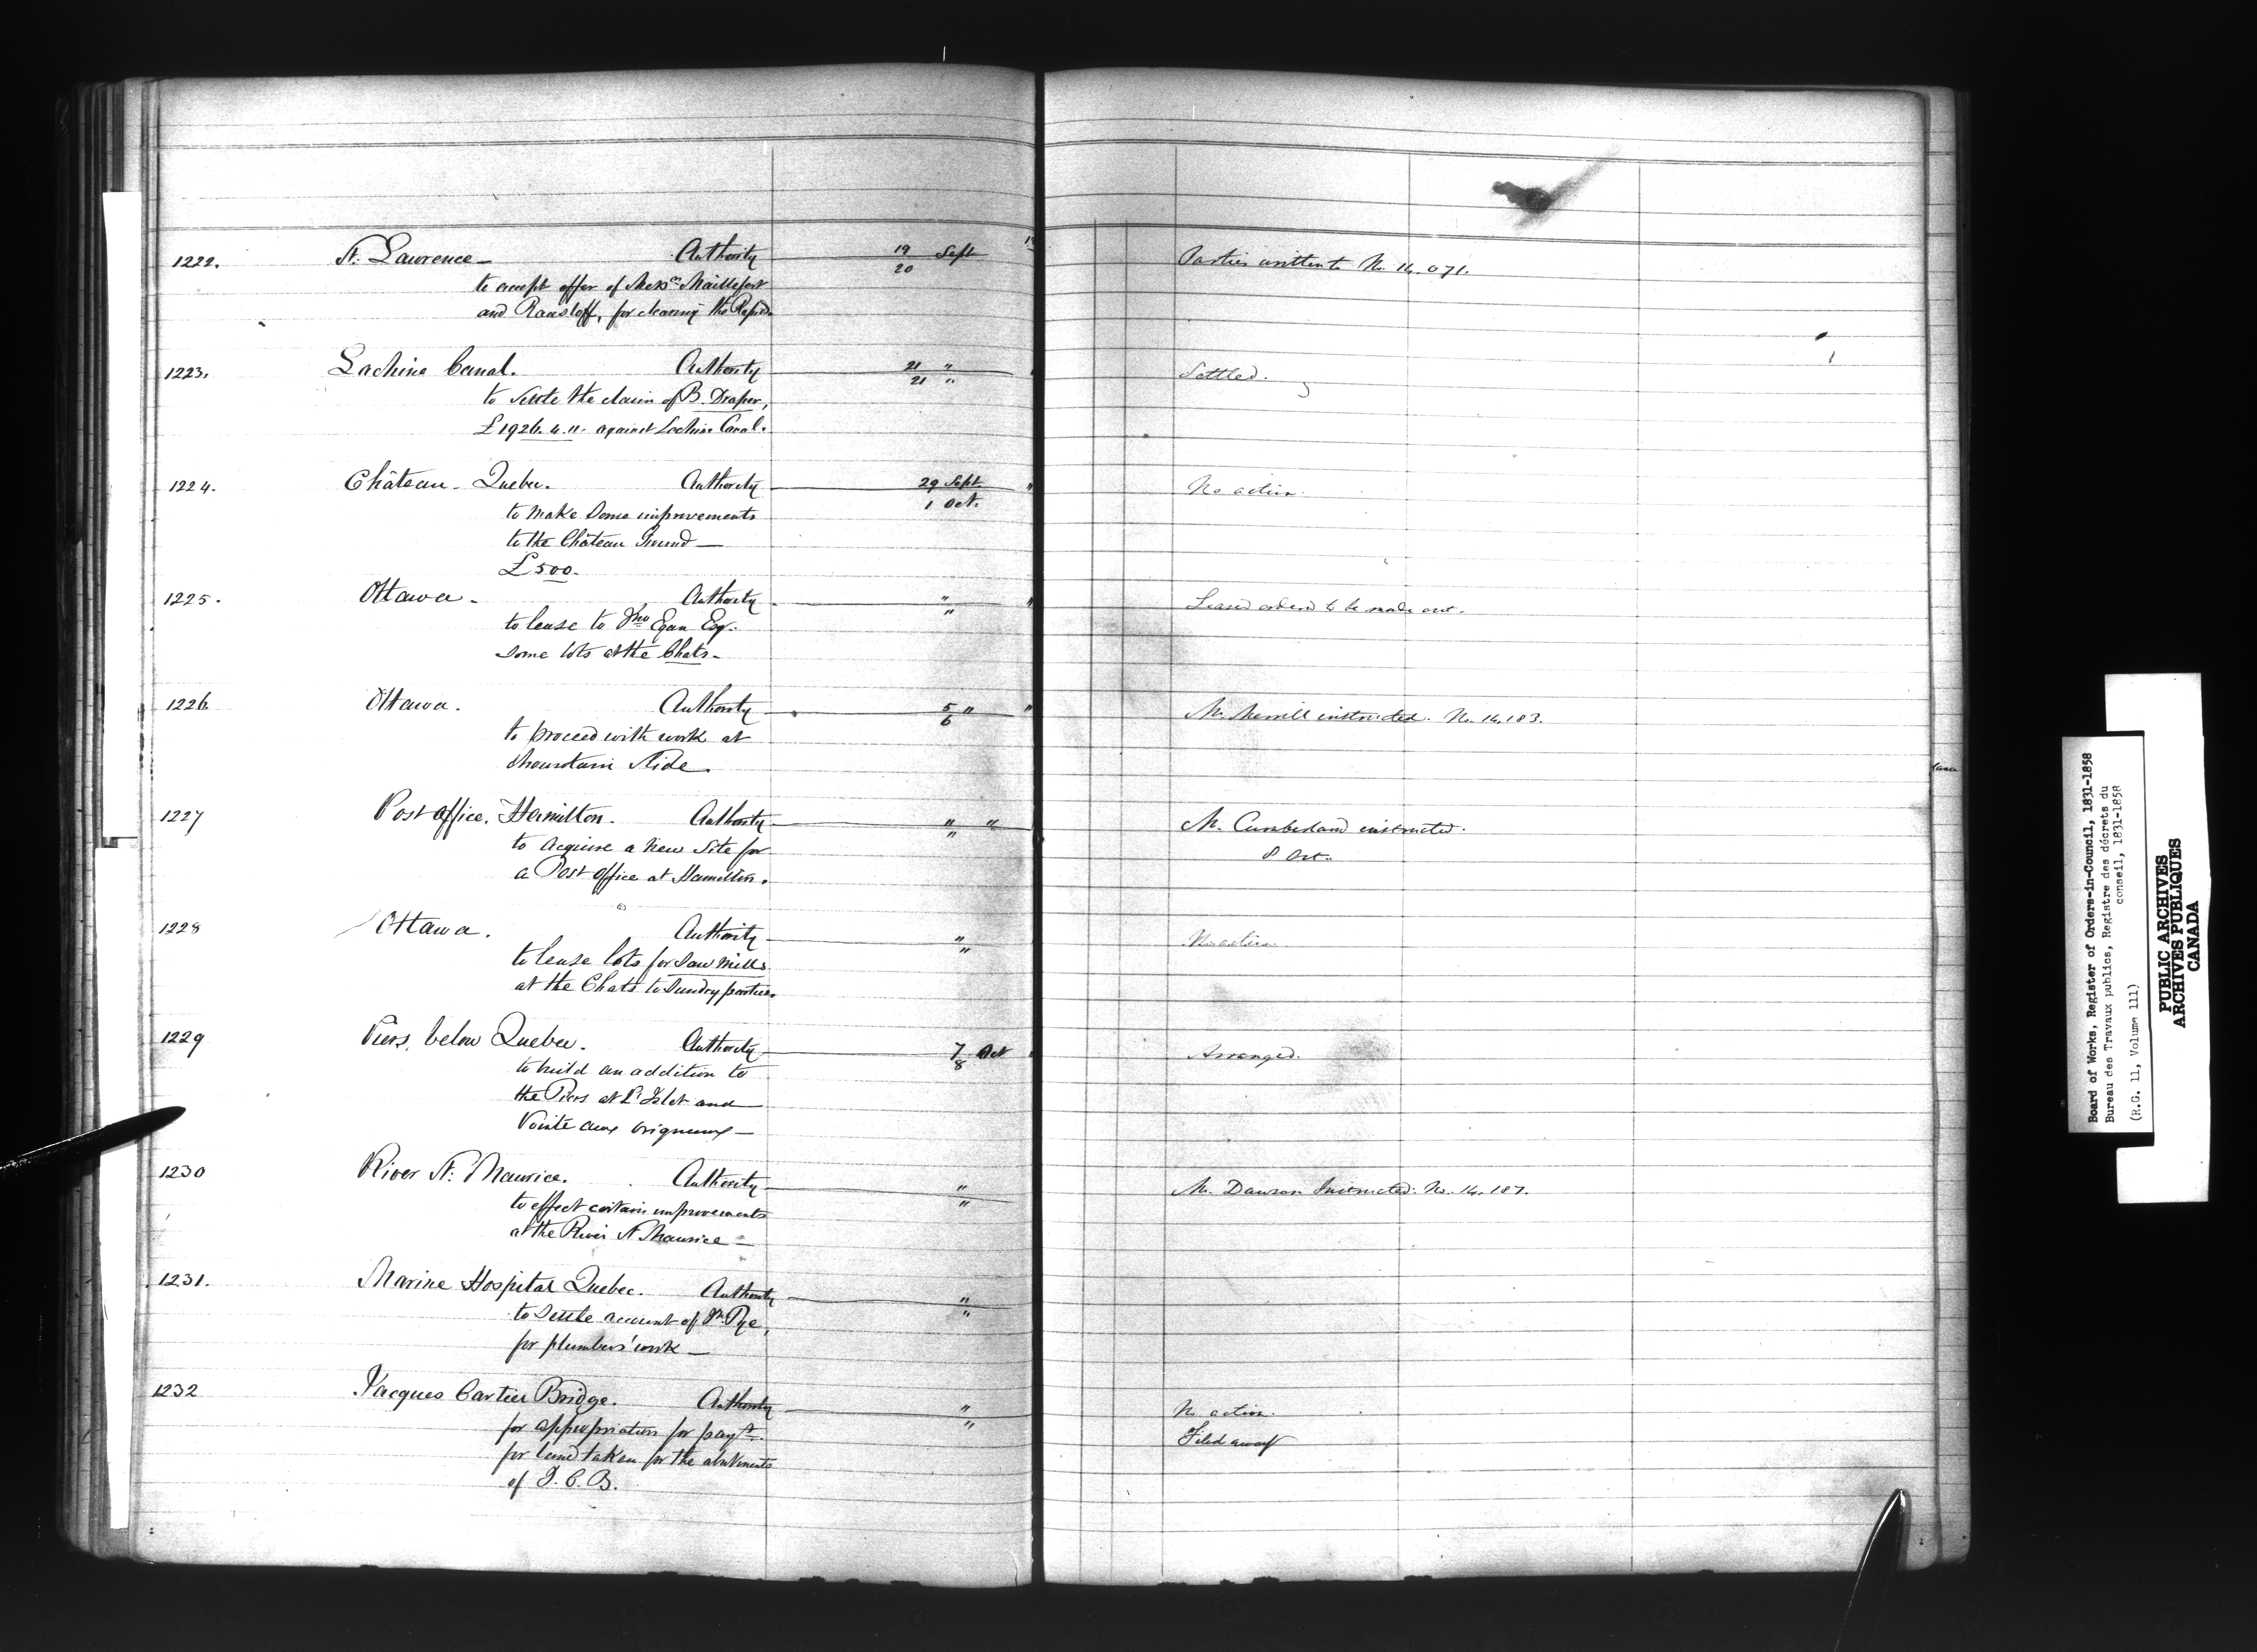 1222. St. Lawrence — Authority 19 Sept Parties written to No. 14.071.
20
to accept offer of Messrs Maillefert
and Raasloff, for clearing the Rapids
1223. Lachine Canal. Authority 21 " Settled.
21 "
to settle the claim of B. Draper,
£1926. 4. 11. against Lachine Canal.
1224. Château - Quebec. Authority 29 Sept. " No action.
1 Oct.
to make some improvements
to the Château Ground —
£500.
1225. Ottawa - Authority " " Leases ordered to be made out.
"
to lease to Jno Egan Esq.
some lots at the Chats -
1226 Ottawa. Authority 5 " " Mr. Merrill instructed. No. 14,183.
6
to proceed with work at
Mountain Slide.
1227 Post Office, Hamilton. Authority " " Mr. Cumberland instructed.
" 8 Oct.
to acquire a new site for
a Post Office at Hamilton.
1228 Ottawa. Authority " No action
"
to lease lots for saw mills
at the Chats to sundry parties.
1229 Piers, below Quebec. Authority 7 Oct Arranged.
8
to build an addition to
the Piers at L'Islet and
Pointe aux Orignaux —
1230 River St. Maurice. Authority " Mr. Dawson Instructed. No. 14,187.
"
to effect certain improvements
at the River St Maurice —
1231. Marine Hospital Quebec. Authority "
"
to settle account of Pye,
for plumbers' work —
1232 Jacques Cartier Bridge. Authority " No action.
" Filed away
for appropriation for payt.
for land taken for the abutments
of J. C. B.
Board of Works, Register of Orders-in-Council, 1831-1858
Bureau des Travaux publics, Registre des décrets du
conseil, 1831-1858
(R.G. 11, Volume 111)
PUBLIC ARCHIVES
ARCHIVES PUBLIQUES
CANADA